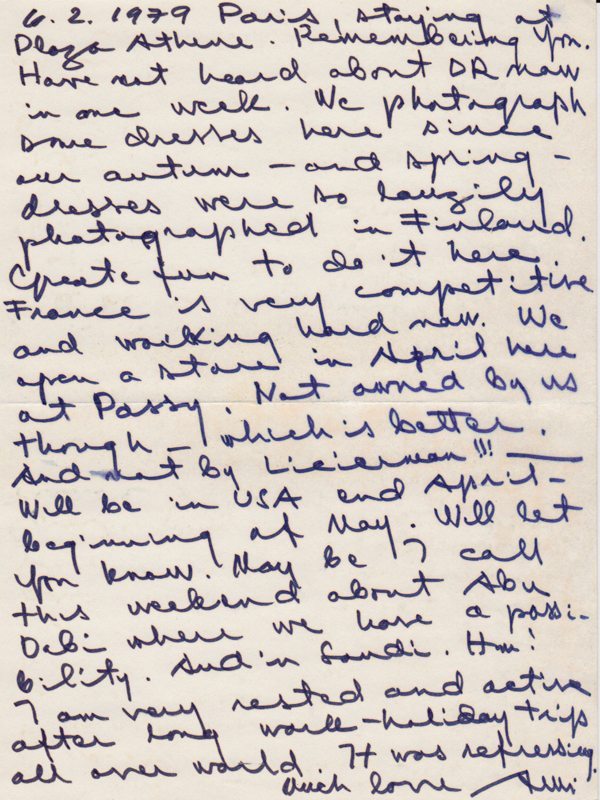 6.2.1979 Paris, staying at
Plaza Athene. Remembering you.
Have not heard about DR now
in one week. We photograph
some dresses here since
our autum – and spring –
dresses were so lousily
photographed in Finland.
Create fun to do it here.
France is very competitive
and working hard now. We
open a store in April here
at Passy. Not owned by us
though – which is better.
And not by
Will be in USA end April –
beginning of May. Will let
you know. May be I call
this weekend about Abu
Dabi where we have a possi-
bility. And in Saudi. Hm!
I am very rested and active
after long work-holiday trips
all over world. It was refressing.
Much love